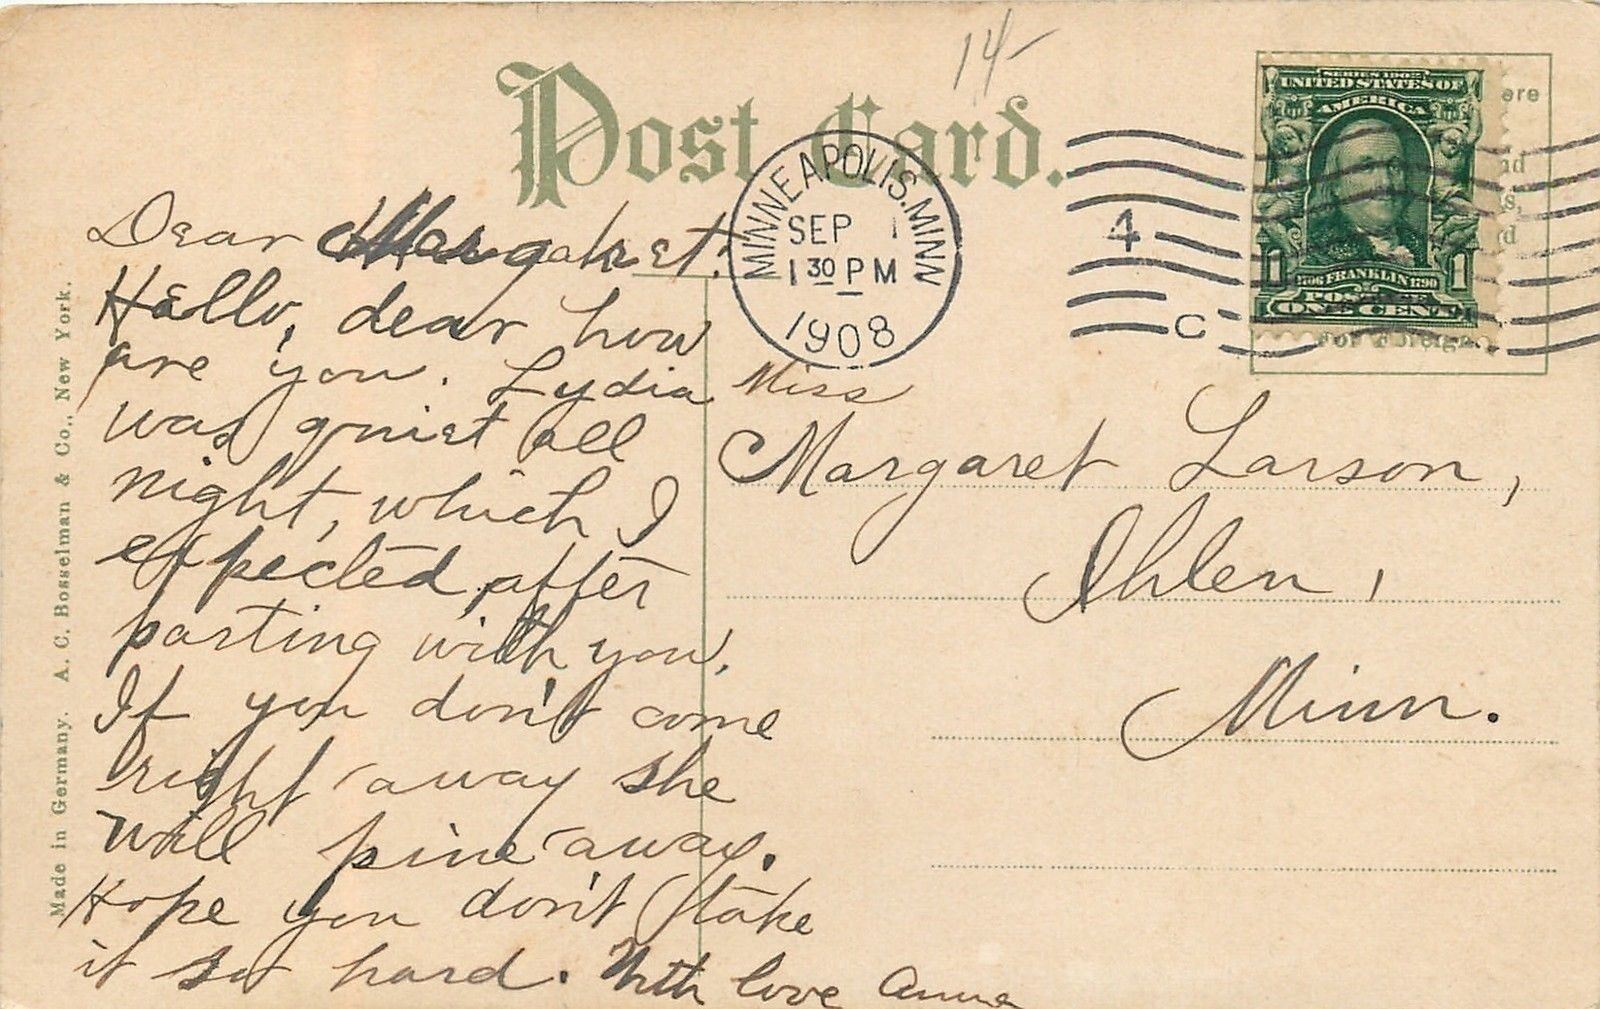 14-
Post Card.
MINNEAPOLIS. MINN
SEP 1
1 30 PM
1908
4
C
SERIES 1902
UNITED STATES OF
AMERICA
1706 FRANKLIN 1790
POSTAGE
1 ONE CENT 1
For Foreign
Dear Margaret.
Hallo, dear how
are you. Lydia
was quiet all
night, which I
expected after
parting with you.
If you don't come
right away she
will pine away.
Hope you don't take
it so hard. With love Anna
Miss
Margaret Larson,
Ihlen,
Minn.
Made in Germany. A. C. Bosselman & Co., New York.